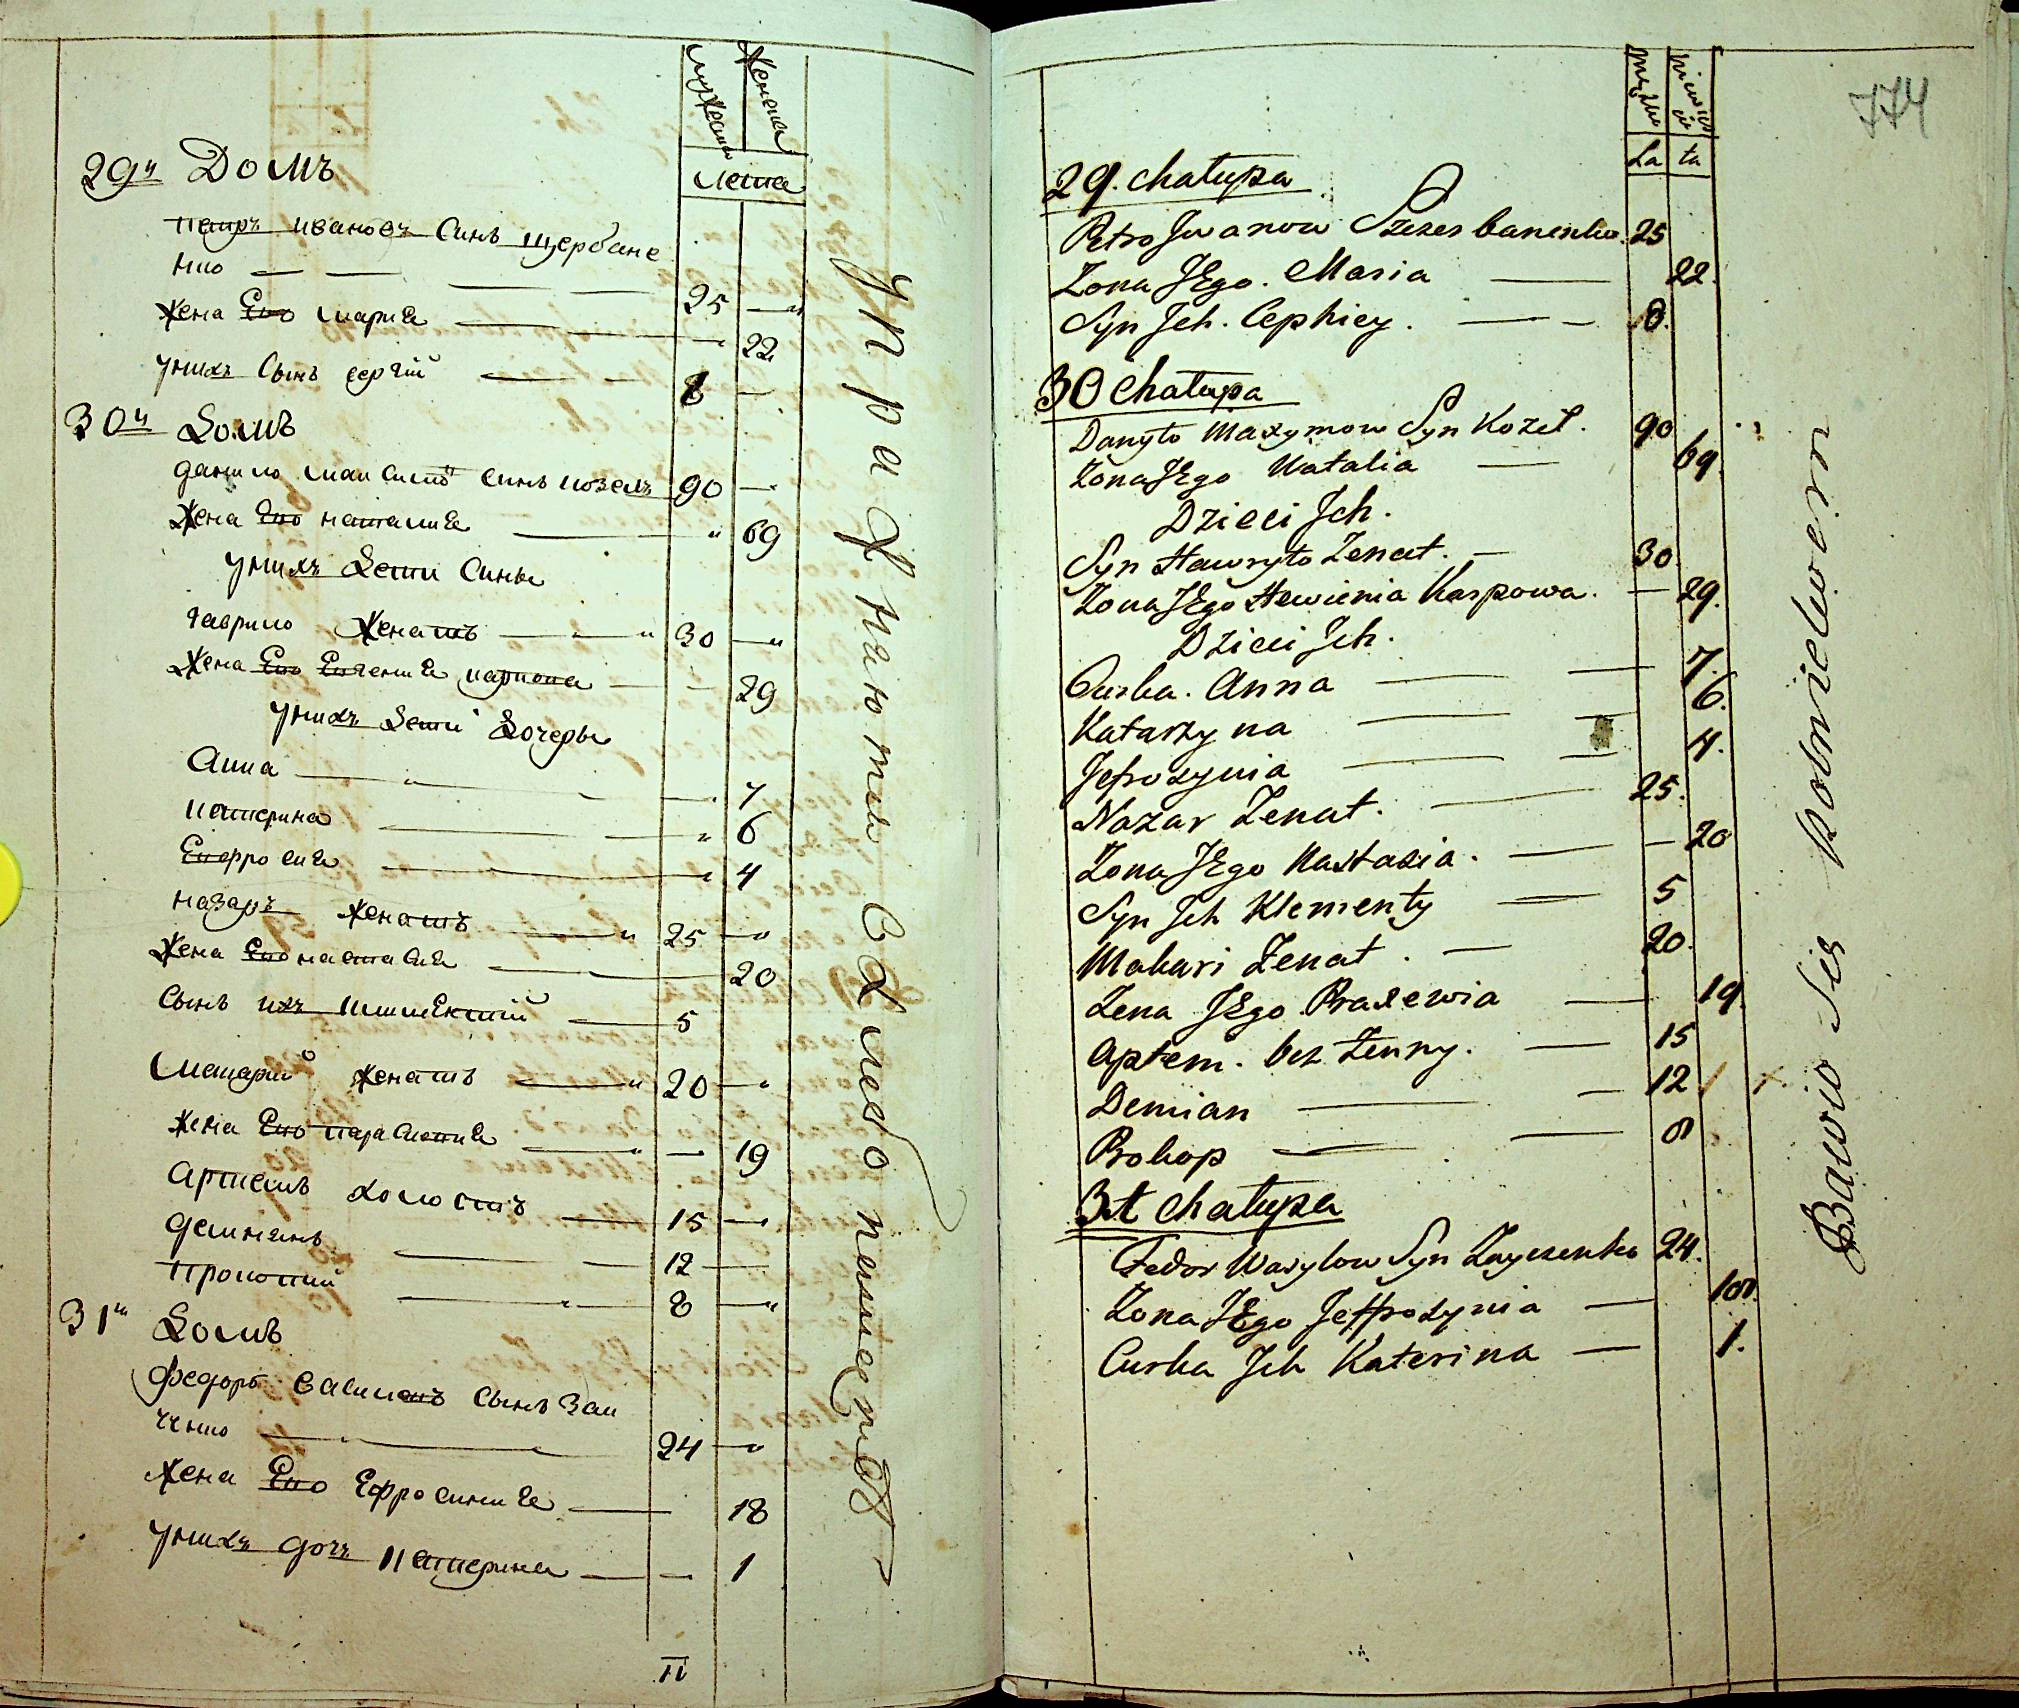 мужеска
женска
лета
29й Домъ
петръ ивановъ Синъ щербане
нко 25
жена Его мария 22
унихъ Сынъ сергий 8
30й Домъ
данило максимовъ Синъ козелъ 90
жена Его наталия 69
унихъ дети Сины
гаврило женатъ 30
жена Его Евгения карпова 29
унихъ дети дочеры
Анна 7
катерина 6
Ефросия 4
назаръ женатъ 25
жена Его настасия 20
Сынъ ихъ климентий 5
макарий женатъ 20
жена Его парасковия 19
Артемъ холостъ 15
демиянъ 12
прокопий 8
31й Домъ
федоръ василевъ Сынъ Заи
ченко 24
жена Его Ефросиния 18
унихъ дочъ катерина 1
упражнюти в хлебопашество
774
męzka
niewieścia
La ta
29. chałupa
Petro Iwanow Szczerbanenko. 25
Żona JEgo. Maria 22.
Syn Ich. Cephiey. 8.
30 chałupa
Danyło Maxymow Syn Kozeł. 90
Żona JEgo Natalia 69
Dzieci Ich.
Syn Hawryło Żenat. 30
Żona JEgo Hewienia Karpowa. 29.
Dzieci Ich.
Curka. Anna 7.
Katarzyna 6.
Jefrozynia 4.
Nazar Żenat. 25.
Żona JEgo Nastazia. 20
Syn Ich Klementy 5
Makari Żenat. 20.
Żena JEgo Praxewia 19.
Aptem. bez Żenny. 15
Demian 12
Prokop 8
31 chałupa
Fedor Wasylow Syn Zayczenko 24.
Żona JEgo Jeffrozynia 18.
Curka Ich Katerina 1.
Bawio sie Rolnictwem